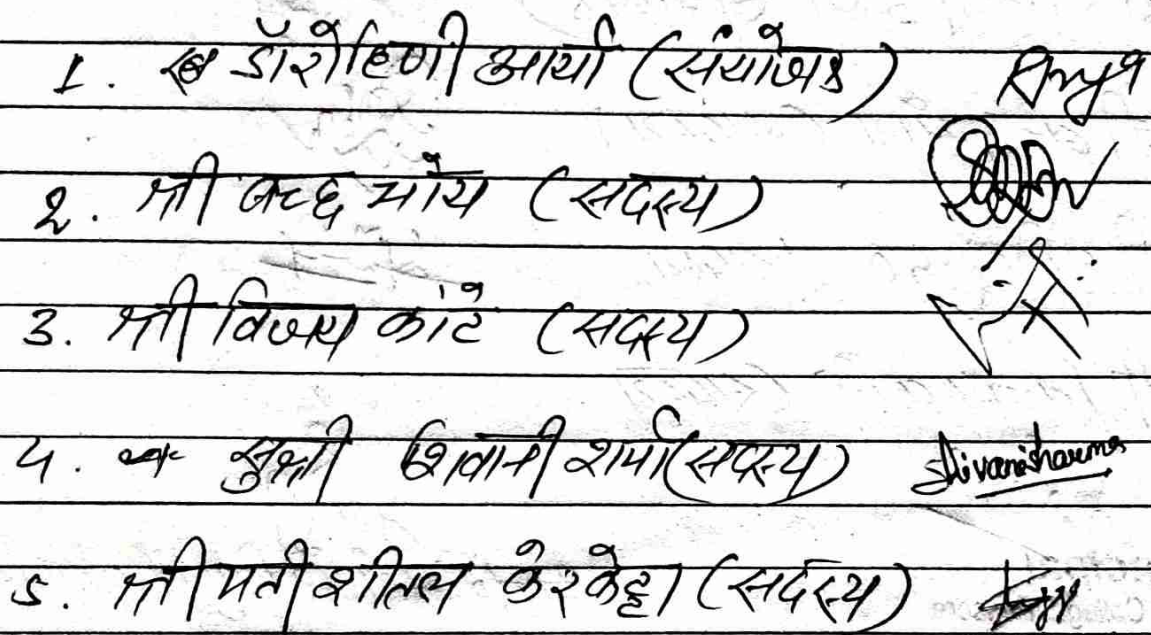 1. डॉ रोहिणी आर्या (संयोजक)
2. श्री मौर्य (सदस्य)
3. श्री विजय कांटे (सदस्य)
4. सुश्री शिवानी शर्मा (सदस्य) Shivanisharma
5. श्रीमती शीतल केरकेट्टा (सर्दस्य)